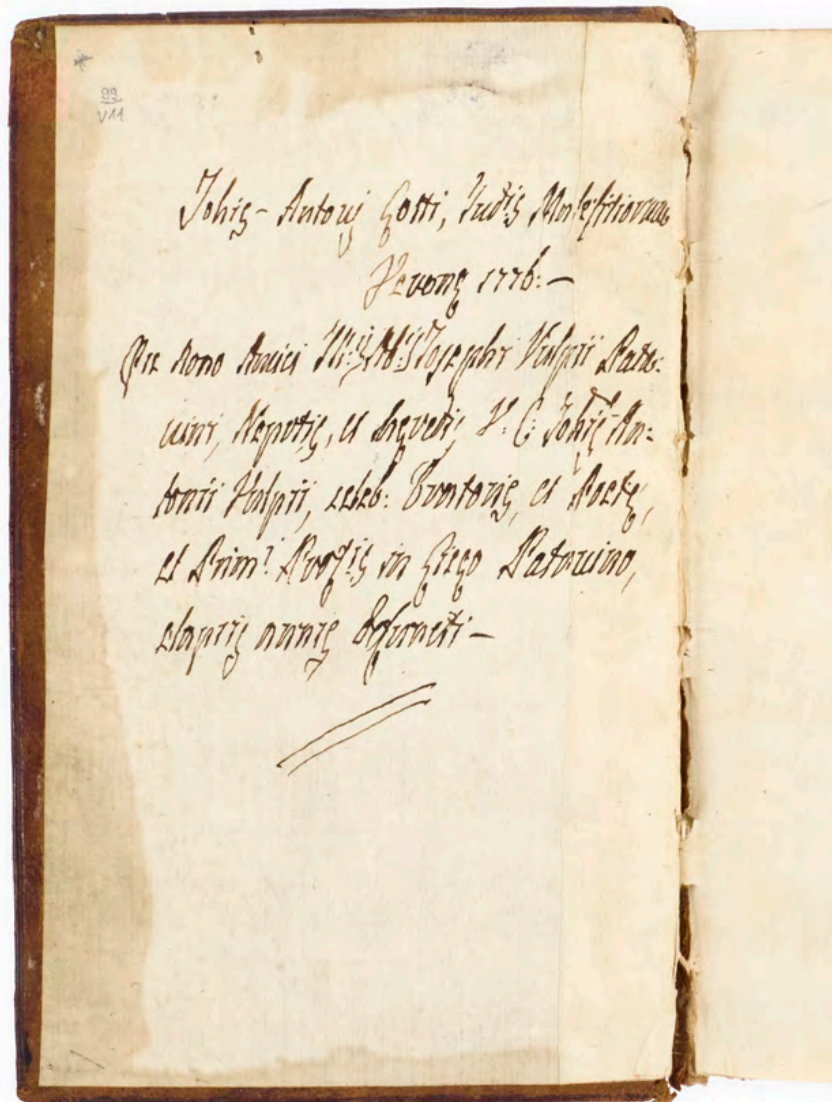 99
V11
Johis- Antonij Gotti, Iudis Maleficiorum
Veronę 1776:-
Ex dono Amici Ill: Ab: Josephi Vulpii Pata:
uini, Nepotis, et hęredis V: C: Johis An:
tonii Vulpii, celeb: Oratoris, et Poetę,
et Prim: Profis in Gręco Patauino,
elapsis annis defuncti-